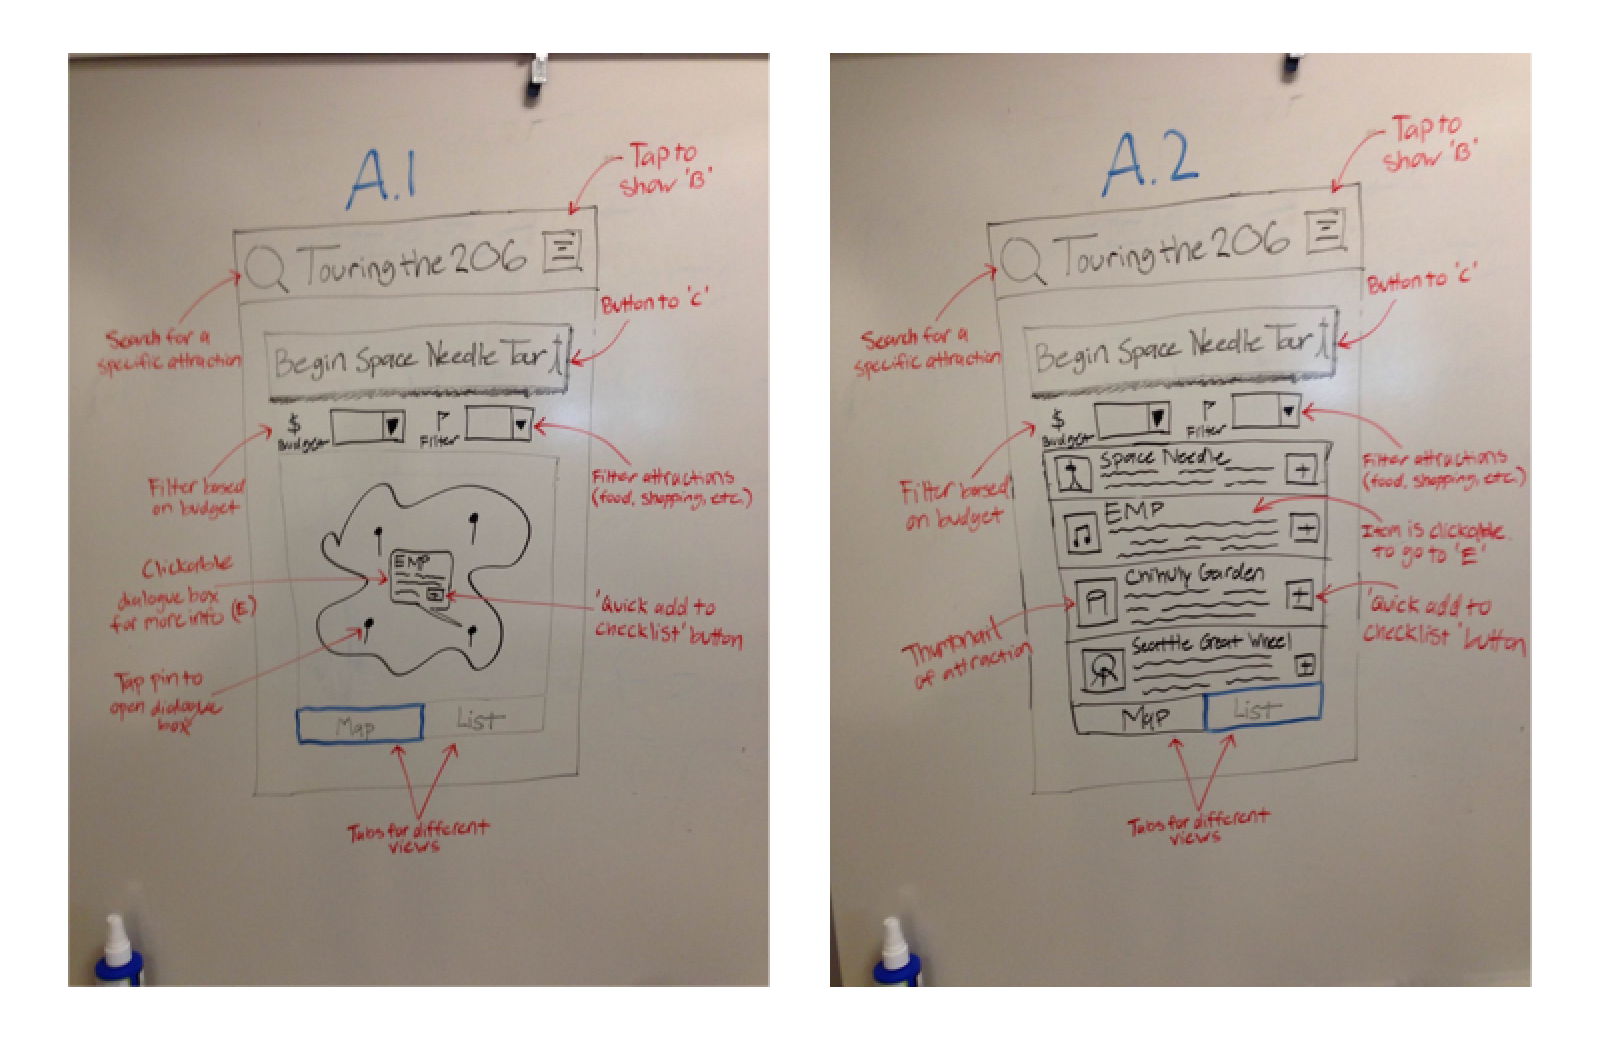 A.1
Tap to
show 'B'
Touring the 206
Button to 'C'
Search for a
specific attraction
Begin Space Needle Tour
$
Budget
Filter
Filter based
on budget
Filter attractions
(food, shopping, etc.)
Clickable
dialogue box
for more info (E)
EMP
'Quick add to
checklist' button
Tap pin to
open dialogue
box
Map
List
Tabs for different
views
A.2
Tap to
show 'B'
Touring the 206
Button to 'C'
Search for a
specific attraction
Begin Space Needle Tour
$
Budget
Filter
Filter based
on budget
Filter attractions
(food, shopping, etc.)
Space Needle
+
EMP
+
Item is clickable
to go to 'E'
Chihuly Garden
+
'Quick add to
checklist' button
Thumbnail
of attraction
Seattle Great Wheel
+
Map
List
Tabs for different
views